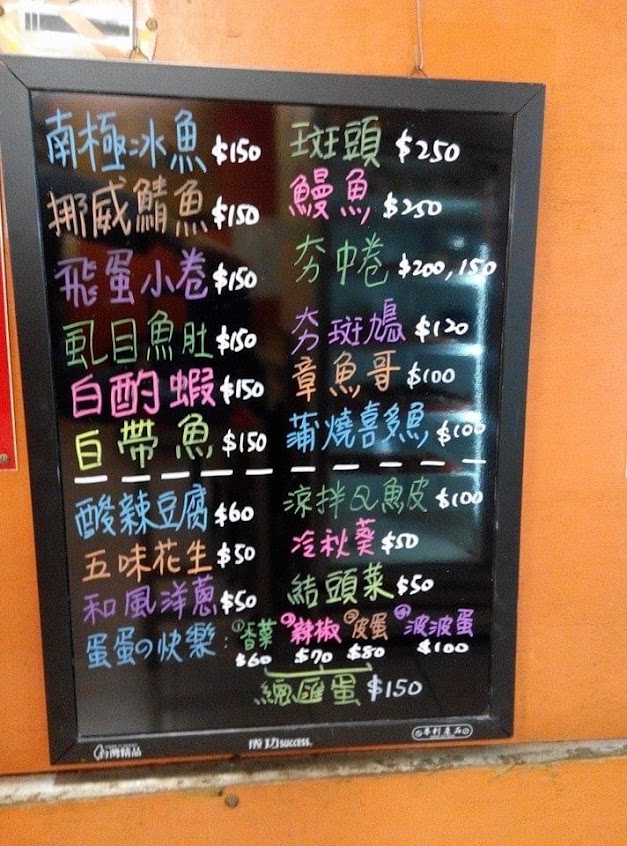 南極冰魚 $150
挪威鯖魚 $150
飛蛋小卷 $150
虱目魚肚 $150
白酌蝦 $150
白帶魚 $150
斑頭 $250
鰻魚 $250
夯中卷 $200,150
夯斑鳩 $120
章魚哥 $100
蒲燒喜多魚 $100
酸辣豆腐 $60
五味花生 $50
和風洋蔥 $50
涼拌Q魚皮 $100
冷秋葵 $50
結頭菜 $50
蛋蛋の快樂：①香菜 ②辣椒 ③皮蛋 ④波波蛋
$60 $70 $80 $100
總匯蛋 $150
台灣精品
成功 success
專利產品